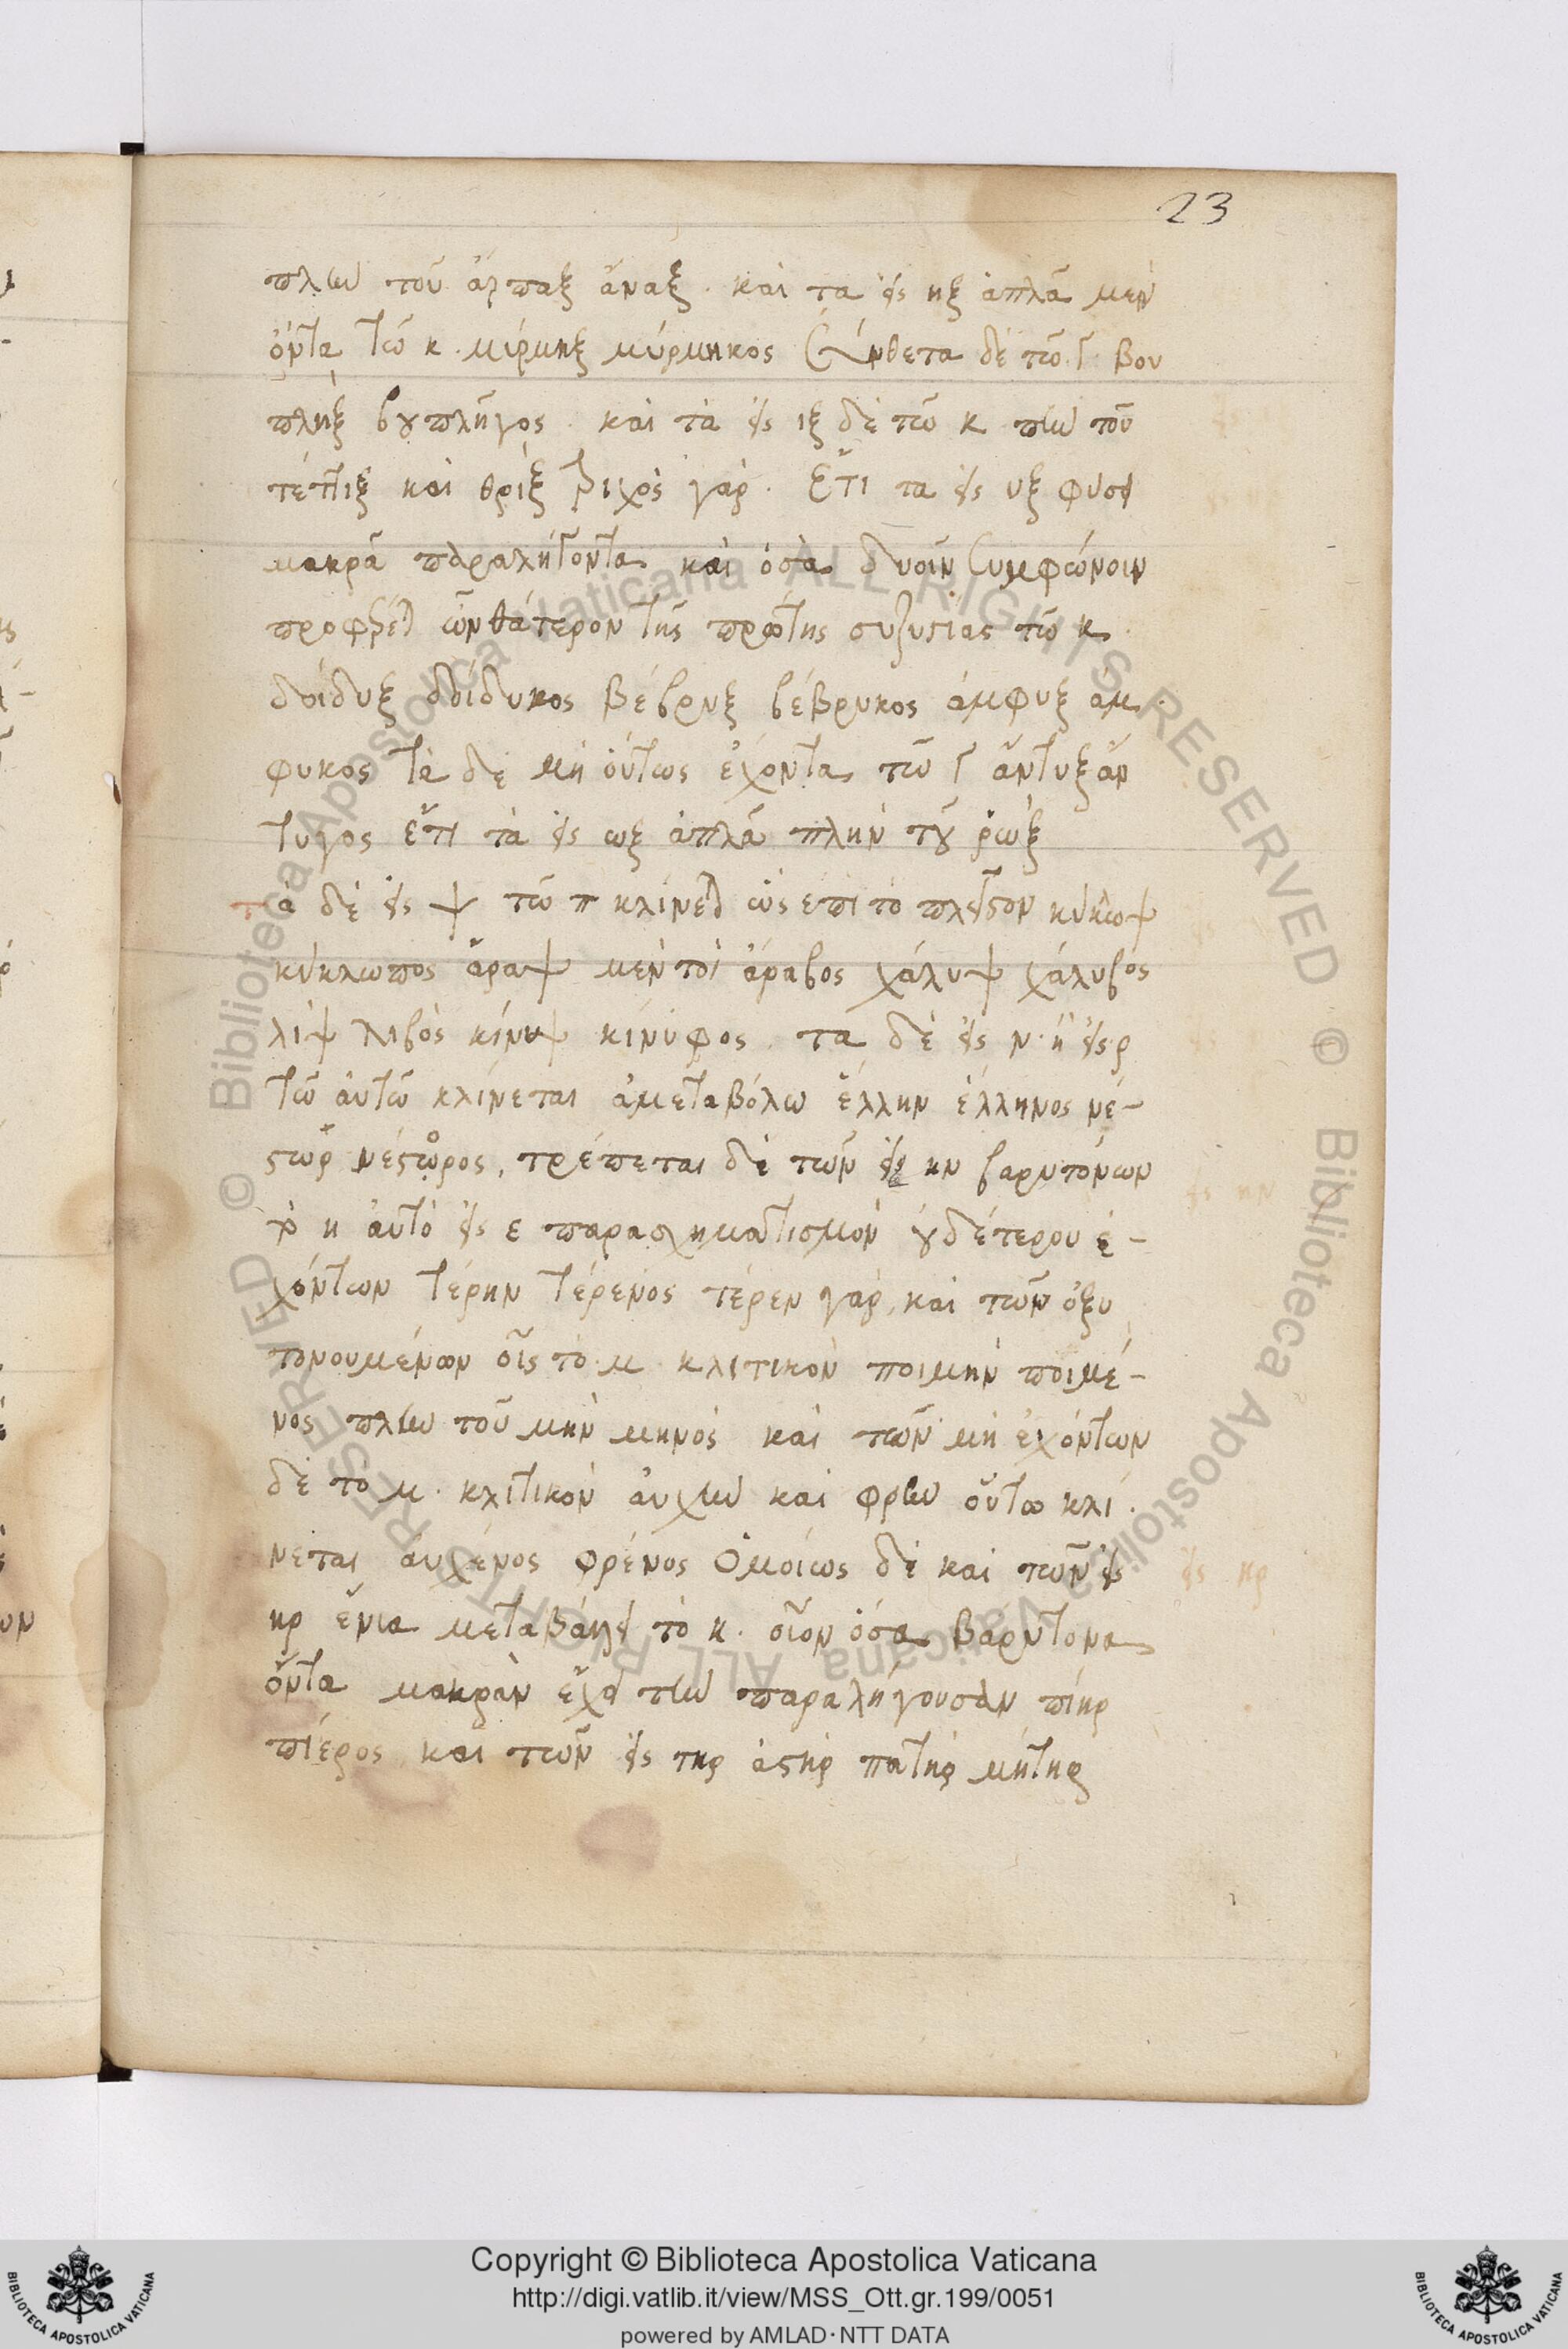 23
πλὴν τοῦ ἅρπαξ ἄναξ. καὶ τα εἰς ηξ ἁπλᾶ μὲν
ὄντα τῶ κ. μύρμηξ μύρμηκος Σύνθετα δὲ τῶ γ. βου
πλὴξ βουπλῆγος. καὶ τὰ εἰς ιξ δὲ τῶ κ πλὴν τοῦ
τέττιξ καὶ θρὶξ τριχὸς γάρ. Ἔτι τα εἰς υξ φύσει
μακρᾶ παραλήγοντα καὶ ὅσα δυοῖν συμφώνοιν
προφέρεται ὧν θάτερον τῆς πρώτης συζυγίας τῶ κ.
δοίδυξ δοίδυκος Βέβρυξ βέβρυκος ἄμφυξ ἄμ
φυκος τὰ δὲ μὴ οὕτως ἔχοντα τῶ γ ἄντυξ ἄν
τυγος ἔτι τὰ εἰς ωξ ἁπλᾶ πλὴν τοῦ ῥὼξ
τὰ δὲ εἰς ψ τῶ π κλίνεται ὡς επὶ τὸ πλεῖστον κύκλωψ
κύκλωπος ἄραψ μέν τοι ἄραβος χάλυψ χάλυβος
λὶψ λιβὸς κίνυψ κινύφος. τα δὲ εἰς ν. ἢ εἰς ρ
τῶ ἀυτῶ κλίνεται ἀμεταβόλω ἕλλην ἕλληνος νέ-
στωρ νέστωρος, τρέπεται δὲ τῶν εἰς ην βαρυτόνων
τὸ η ἀυτὸ εἰς ε παρασχηματισμὸν οὐδέτερου ἐ-
χόντων τέρην τέρενος τέρεν γαρ, καὶ τῶν ὀξυ
τονουμένων οἷς τὸ μ κλιτικὸν ποιμὴν ποιμέ-
νος πλὴν τοῦ μὴν μηνὸς καὶ τῶν μὴ ἐχόντων
δὲ τὸ μ. κλιτικὸν ἀυχὴν καὶ φρὴν οὕτω κλί.
νεται ἀυχένος φρένος Ὁμοίως δὲ καὶ τῶν εἰς
ηρ ἔνια μεταβάλλει τὸ η. οἷον ὅσα βαρύτονα
ὄντα μακρὰν ἔχει τὴν παραλήγουσαν πίηρ
πίερος καὶ τῶν εἰς τηρ ἀστὴρ πατὴρ μήτηρ
εἰς ην
εἰς ηρ
© Biblioteca Apostolica Vaticana ALL RIGHTS RESERVED
© Biblioteca Apostolica Vaticana ALL RIGHTS RESERVED
Copyright © Biblioteca Apostolica Vaticana
http://digi.vatlib.it/view/MSS_Ott.gr.199/0051
powered by AMLAD·NTT DATA
BIBLIOTECA APOSTOLICA VATICANA
BIBLIOTECA APOSTOLICA VATICANA